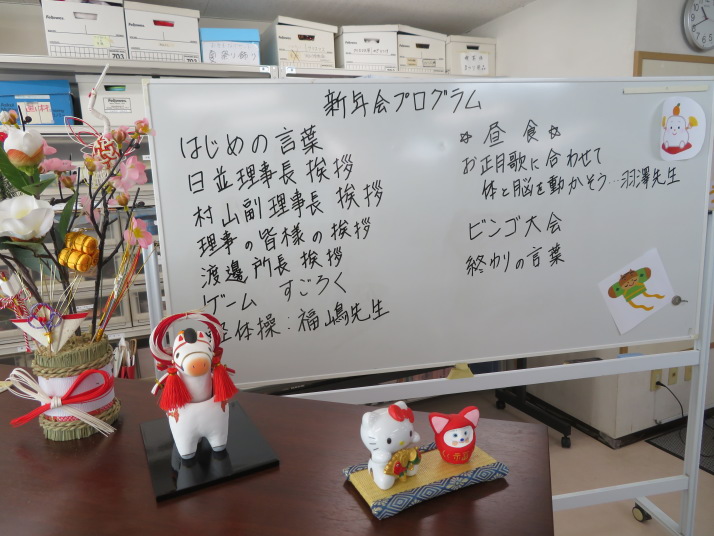 新年会プログラム
はじめの言葉
日並理事長 挨拶
村山副理事長 挨拶
理事の皆様の挨拶
渡邊所長 挨拶
ゲーム すごろく
体操:福嶋先生
昼食
お正月歌に合わせて
体と脳を動かそう…羽澤先生
ビンゴ大会
終わりの言葉
Fellowes
703
Fellowes
703
Fellowes
Fellowes